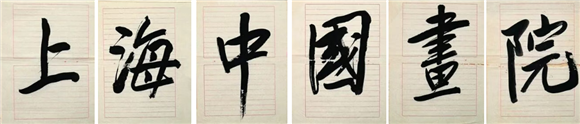 上海中國畫院